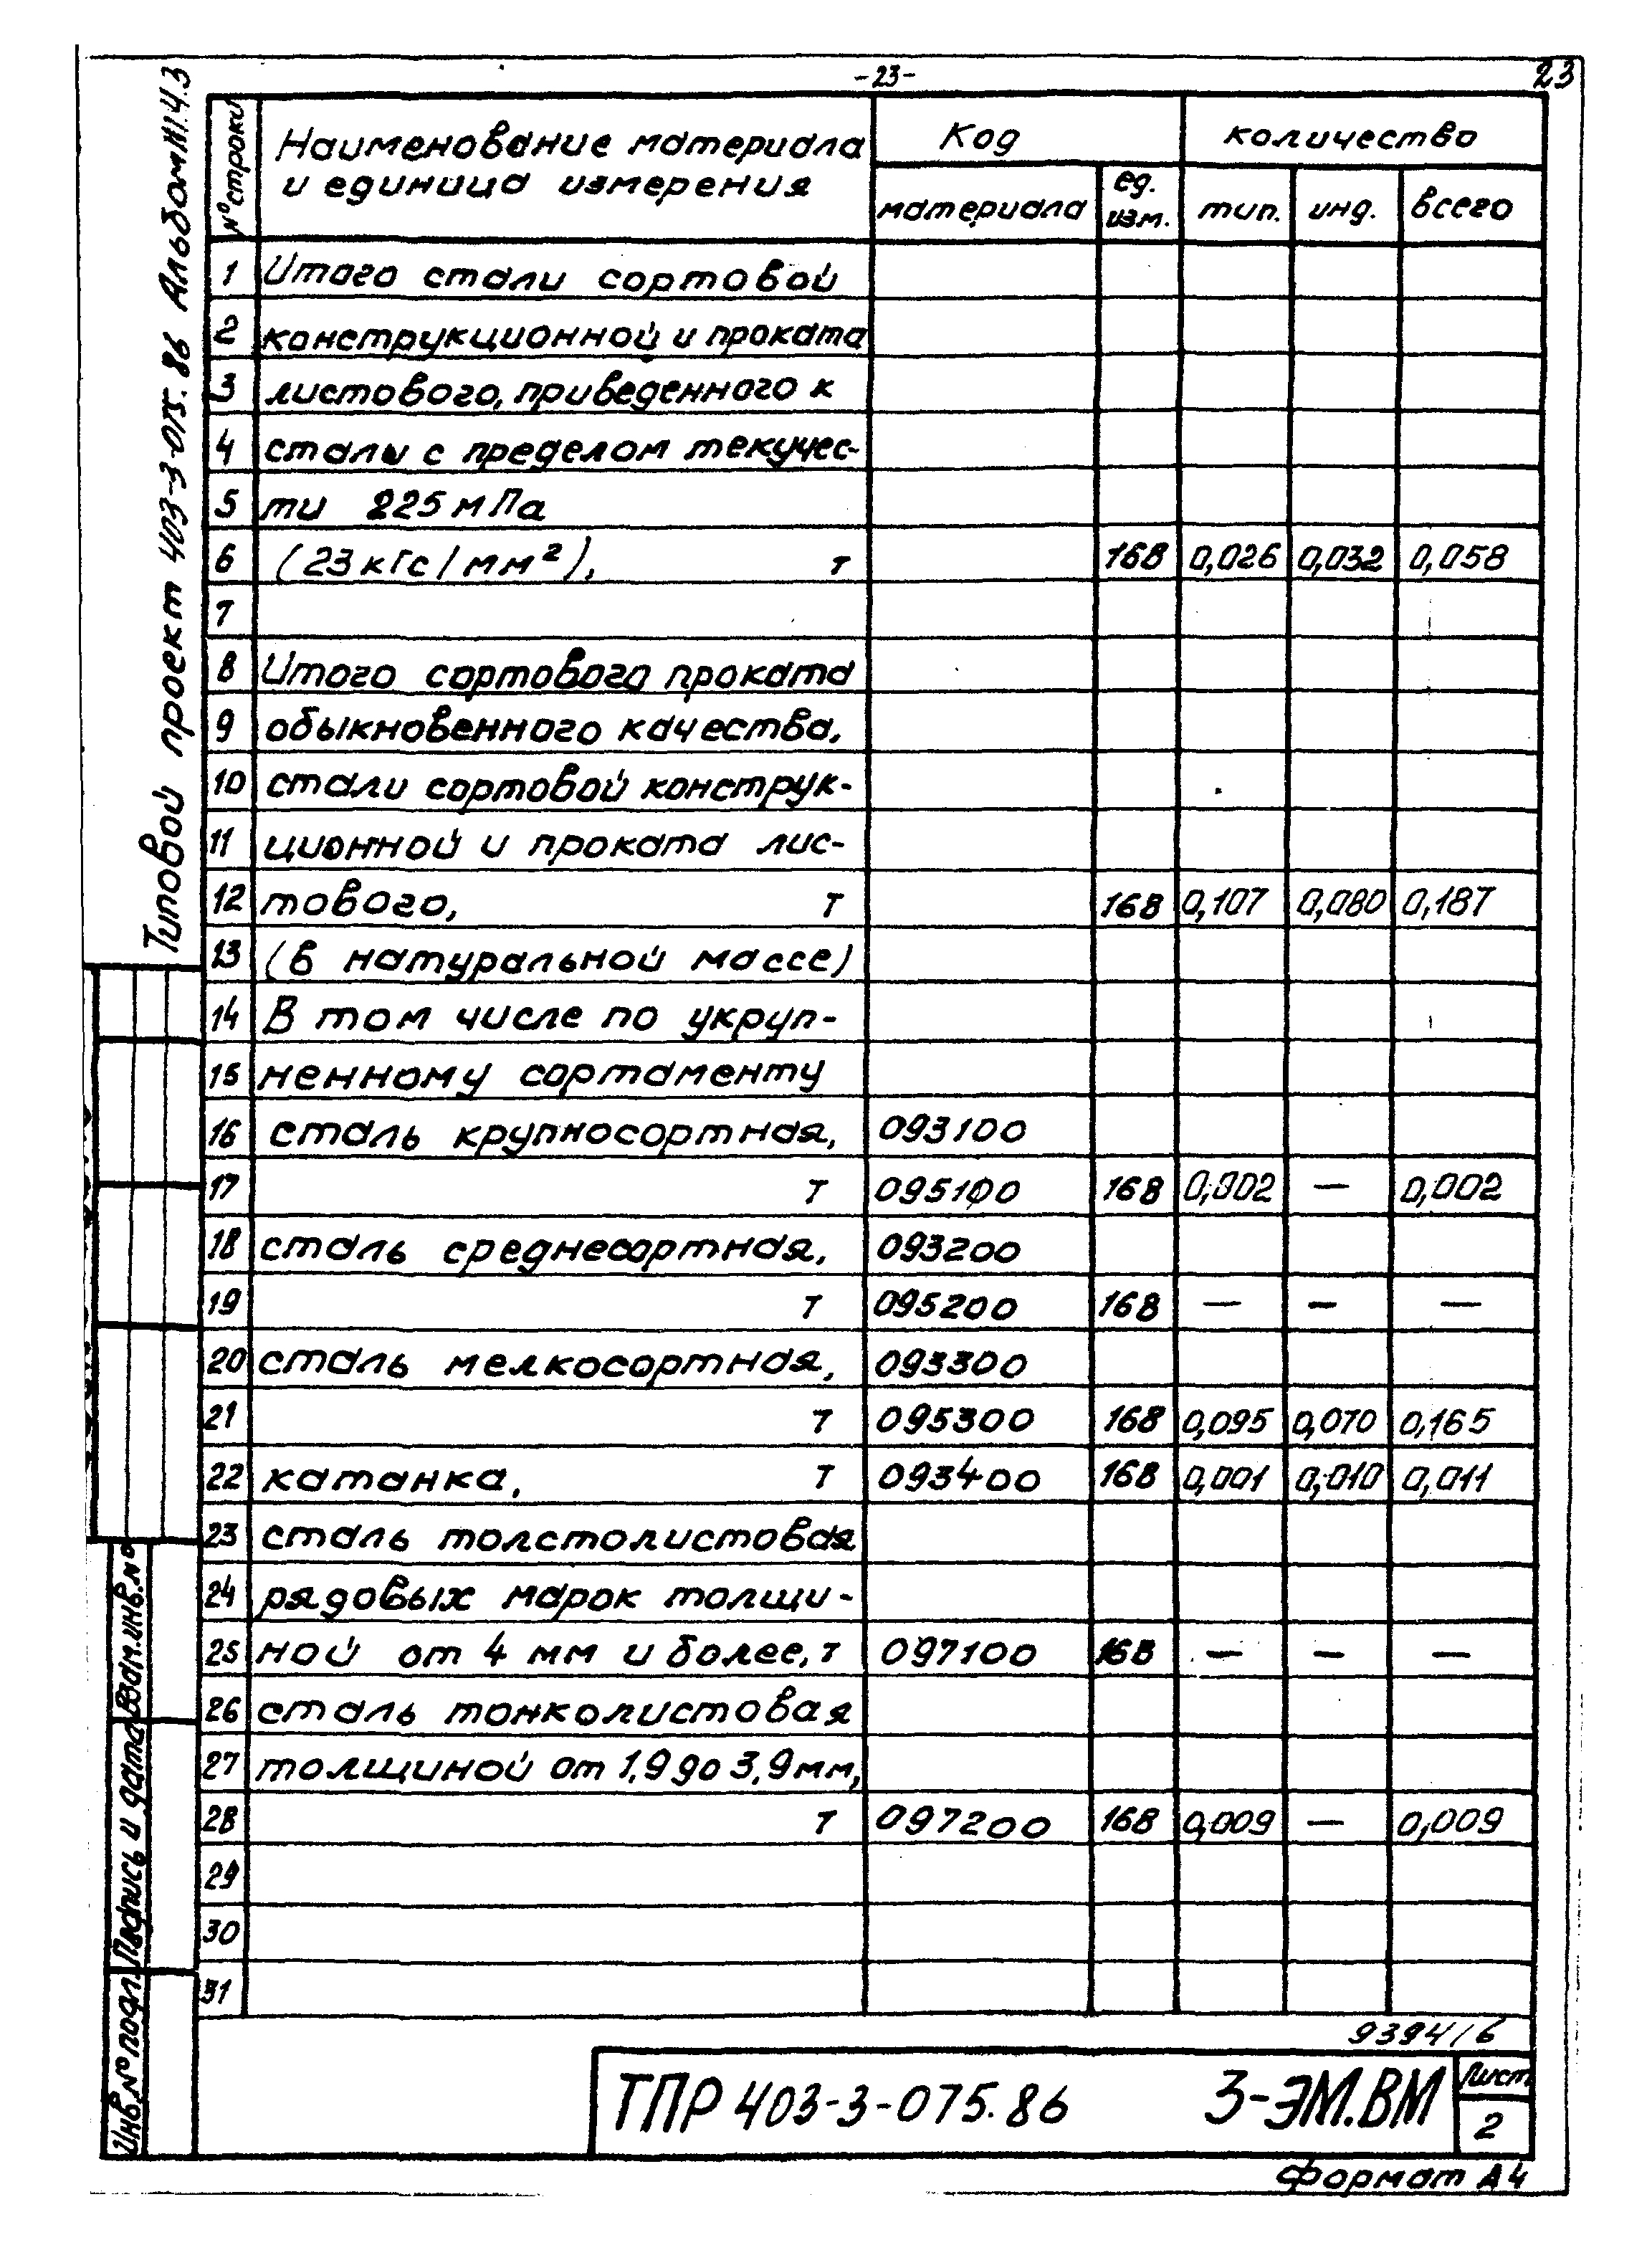 -23-
23
Типовой проект 403-3-075.86 Альбом III.4.3
№ строки
Наименование материала
и единица измерения
Код
количество
материала
ед.
изм.
тип.
инд.
всего
1 Итого стали сортовой
2 конструкционной и проката
3 листового, приведенного к
4 стали с пределом текучес-
5 ти 225 мПа
6 (23 кгс/мм²), т 168 0,026 0,032 0,058
7
8 Итого сортового проката
9 обыкновенного качества,
10 стали сортовой конструк-
11 ционной и проката лис-
12 тового, т 168 0,107 0,080 0,187
13 (в натуральной массе)
14 В том числе по укруп-
15 ненному сортаменту
16 сталь крупносортная, 093100
17 т 095100 168 0,002 — 0,002
18 сталь среднесортная, 093200
19 т 095200 168 — — —
20 сталь мелкосортная, 093300
21 т 095300 168 0,095 0,070 0,165
22 катанка, т 093400 168 0,001 0,010 0,011
23 сталь толстолистовая
24 рядовых марок толщи-
25 ной от 4 мм и более, т 097100 168 — — —
26 сталь тонколистовая
27 толщиной от 1,9 до 3,9 мм,
28 т 097200 168 0,009 — 0,009
29
30
31
Взам.инв.№
Подпись и дата
Инв.№ подл.
9394/6
ТПР 403-3-075.86 3-ЭМ.ВМ
Лист
2
Формат А4